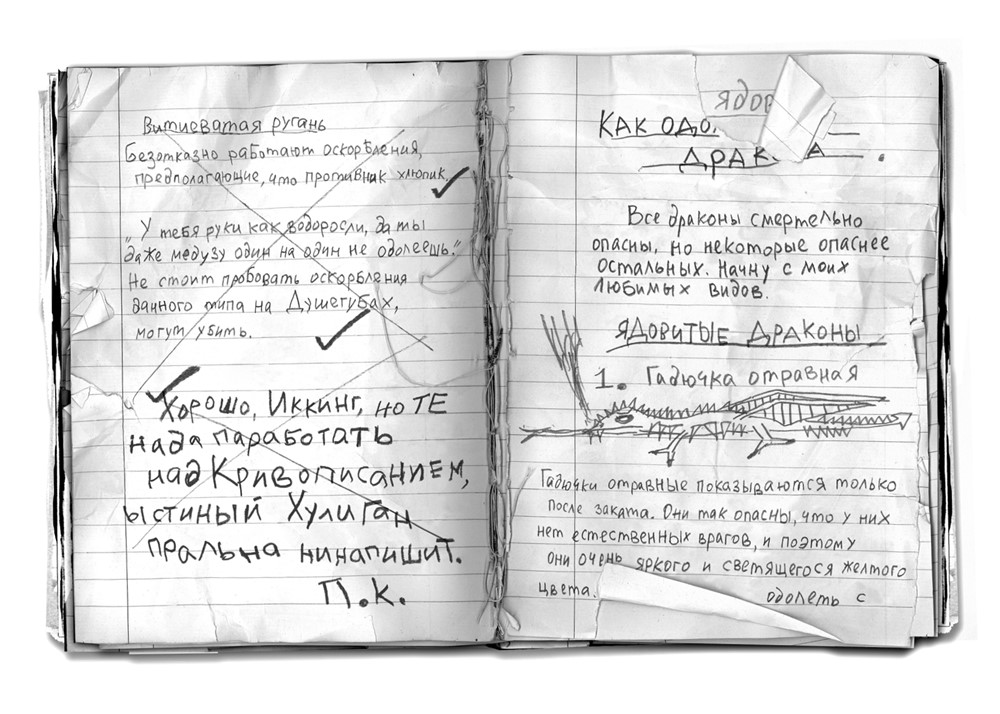 Витиеватая ругань
Безотказно работают оскорбления,
предполагающие, что противник хлюпик.
„У тебя руки как водоросли, да ты
даже медузу один на один не одолеешь."
Не стоит пробовать оскорбления
данного типа на Душегубах,
могут убить.
Хорошо, Иккинг, но ТЕ
нада паработать
над Кривописанием,
ыстиный Хулиган
пральна нинапишит.
П.К.
ядов
КАК ОДО
ДРАК
Все драконы смертельно
опасны, но некоторые опаснее
остальных. Начну с моих
любимых видов.
ЯДОВИТЫЕ ДРАКОНЫ
1. Гадючка отравная
Гадючки отравные показываются только
после заката. Они так опасны, что у них
нет естественных врагов, и поэтому
они очень яркого и светящегося желтого
цвета. одолеть с